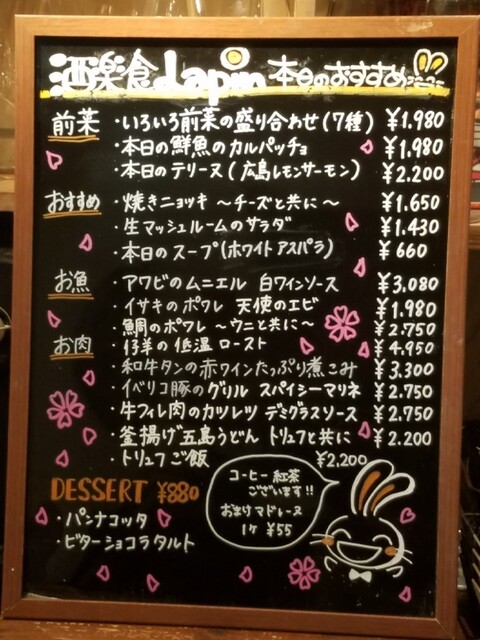 酒楽食 Lapin 本日のおすすめ
前菜 ・いろいろ前菜の盛り合わせ(7種) ¥1.980
・本日の鮮魚のカルパッチョ ¥1.980
・本日のテリーヌ(広島レモンサーモン) ¥2.200
おすすめ ・焼きニョッキ 〜チーズと共に〜 ¥1.650
・生マッシュルームのサラダ ¥1.430
・本日のスープ(ホワイトアスパラ) ¥660
お魚 ・アワビのムニエル 白ワインソース ¥3.080
・イサキのポワレ 天使のエビ ¥1.980
・鯛のポワレ 〜ウニと共に〜 ¥2.750
お肉 ・仔羊の低温ロースト ¥4.950
・和牛タンの赤ワインたっぷり煮こみ ¥3.300
・イベリコ豚のグリル スパイシーマリネ ¥2.750
・牛フィレ肉のカツレツ デミグラスソース ¥2.750
・釜揚げ五島うどん トリュフと共に ¥2.200
・トリュフご飯 ¥2,200
DESSERT ¥880
・パンナコッタ
・ビターショコラタルト
コーヒー 紅茶
ございます!!
おまけ マドレーヌ
1ケ ¥55